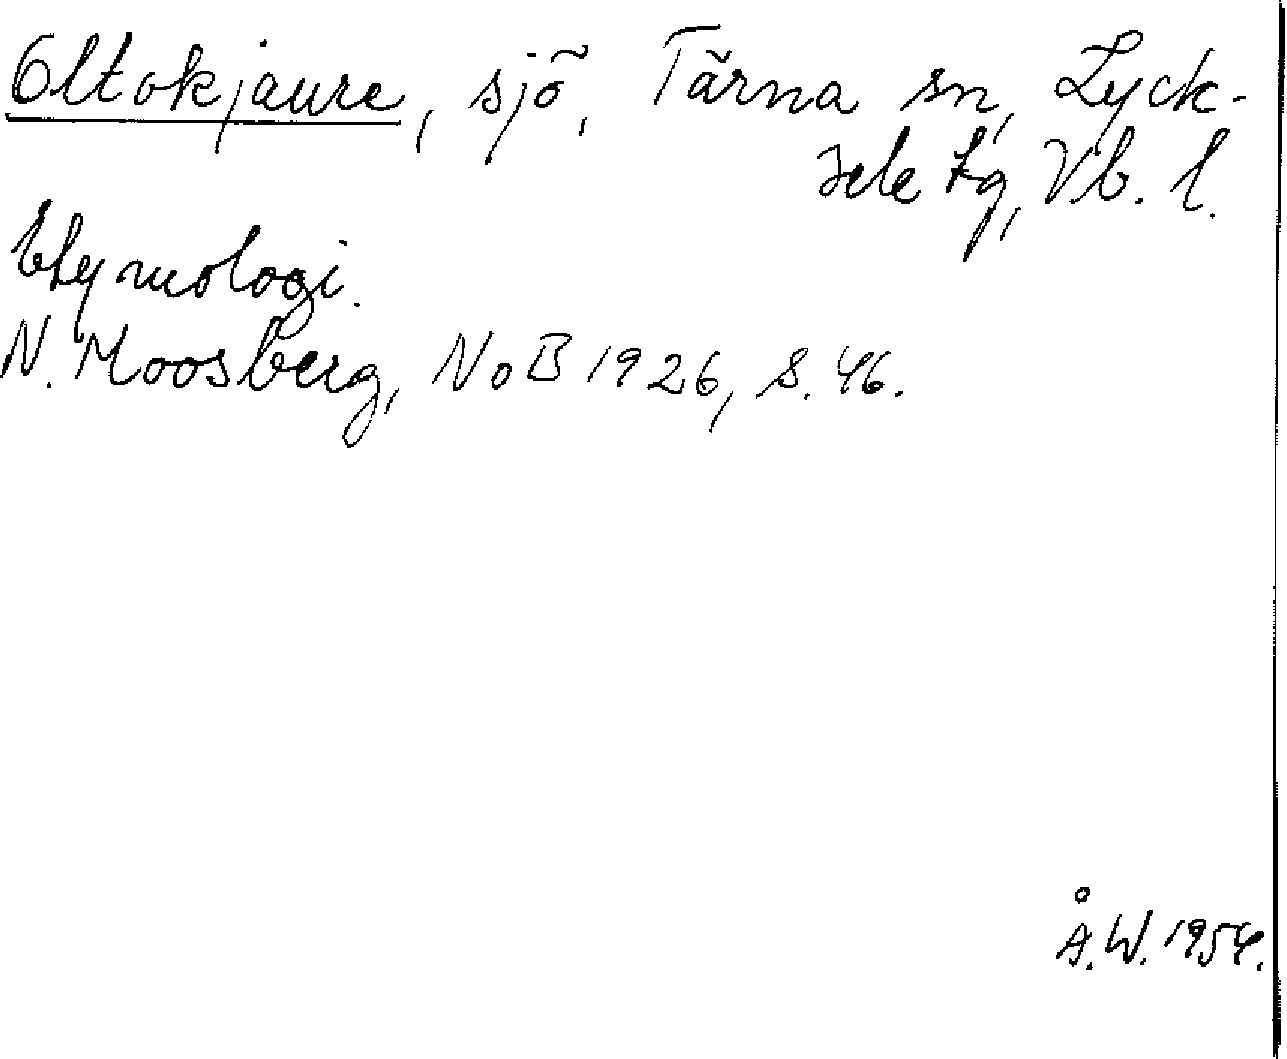 Oltokjaure, sjö, Tärna sn, Lyck-
sele tg, Vb. l.
Etymologi.
N. Moosberg, NoB 1926, s. 46.
Å.W. 1954.